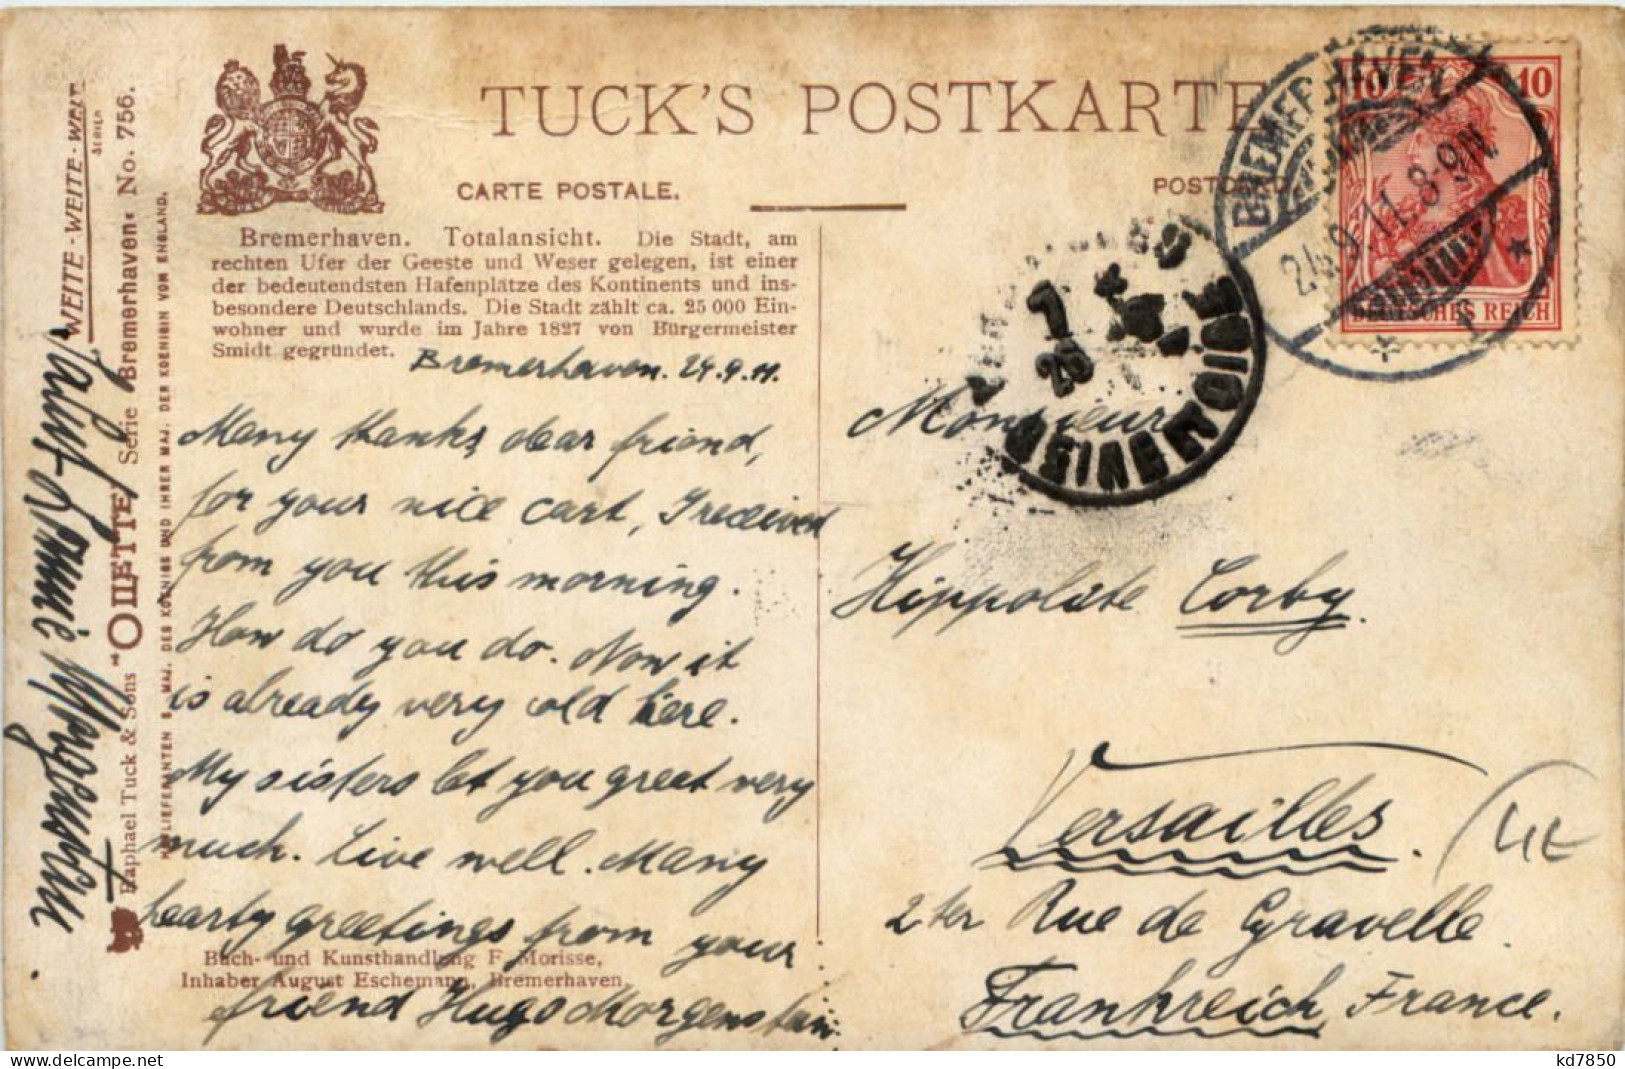 TUCK'S POSTKARTE
CARTE POSTALE.
POSTCARD
Bremerhaven. Totalansicht. Die Stadt, am
rechten Ufer der Geeste und Weser gelegen, ist einer
der bedeutendsten Hafenplätze des Kontinents und ins-
besondere Deutschlands. Die Stadt zählt ca. 25 000 Ein-
wohner und wurde im Jahre 1827 von Bürgermeister
Smidt gegründet.
Bremerhaven. 24.9.11.
Many thanks, dear friend,
for your nice cart, I recieived
from you this morning.
How do you do. Now it
is already very cold here.
My sisters let you great very
much. Live well. Many
hearty greetings from your
friend Hugo Morgenstern.
Buch- und Kunsthandlung F. Morisse,
Inhaber August Eschemann, Bremerhaven.
WEITE-WEITE-WELT
SERIEN
Raphael Tuck & Sons "OILETTE" Serie „Bremerhaven“ No. 756.
HOFLIEFERANTEN S. MAJ. DES KOENIGS UND IHRER MAJ. DER KOENIGIN VON ENGLAND.
Morgenstern
BREMERHAVEN
24.9.11.8-9N.
* 1 *
10 10
DEUTSCHES REICH
SEINE ET OISE
Monsieur
Hippolite Corby.
Versailles.
2 ter Rue de Gravelle.
Frankreich, France.
kd7850